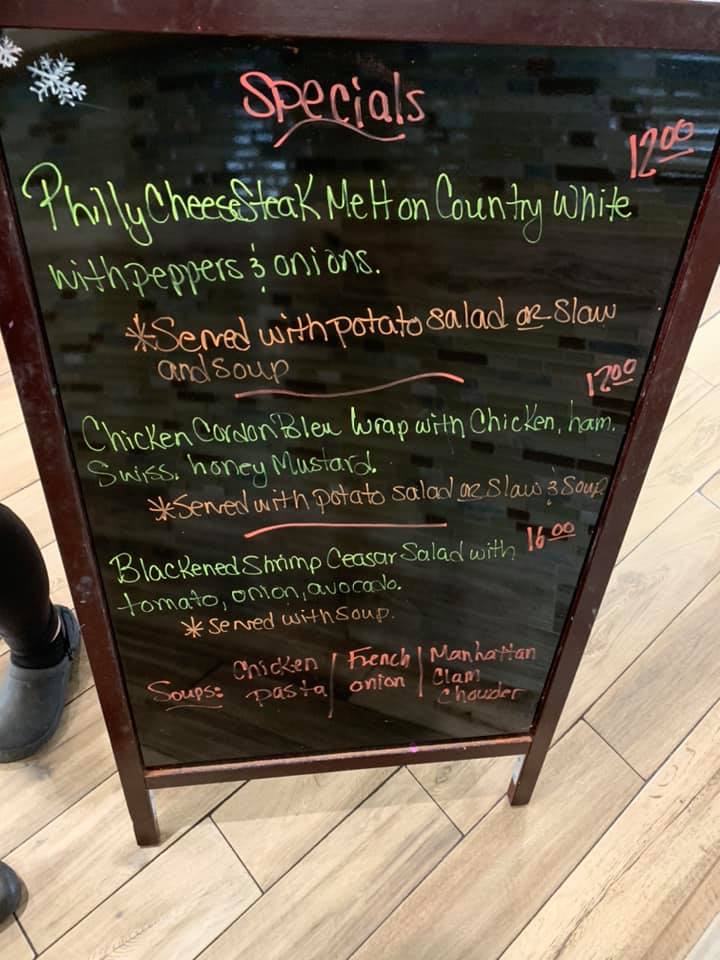 Specials
12.00
Philly Cheese Steak Melt on Country White
with peppers & onions.
*Served with potato salad or Slaw
and soup
12.00
Chicken Cordon Bleu Wrap with Chicken, ham,
Swiss, honey Mustard.
*Served with potato salad or Slaw & Soup
16.00
Blackened Shrimp Ceasar Salad with
tomato, onion, avocado.
*Served with Soup.
Soups: Chicken pasta | French onion | Manhattan Clam Chowder